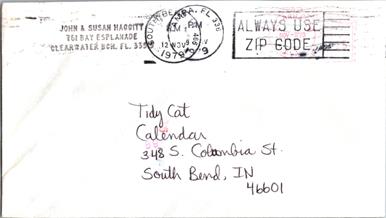 JOHN & SUSAN HAGGITY
761 BAY ESPLANADE
CLEARWATER BCH. FL.
TAMPA, FL 336
PM
12 NOV
1979
ALWAYS USE
ZIP CODE
Tidy Cat
Calendar
348 S. Columbia St.
South Bend, IN
46601